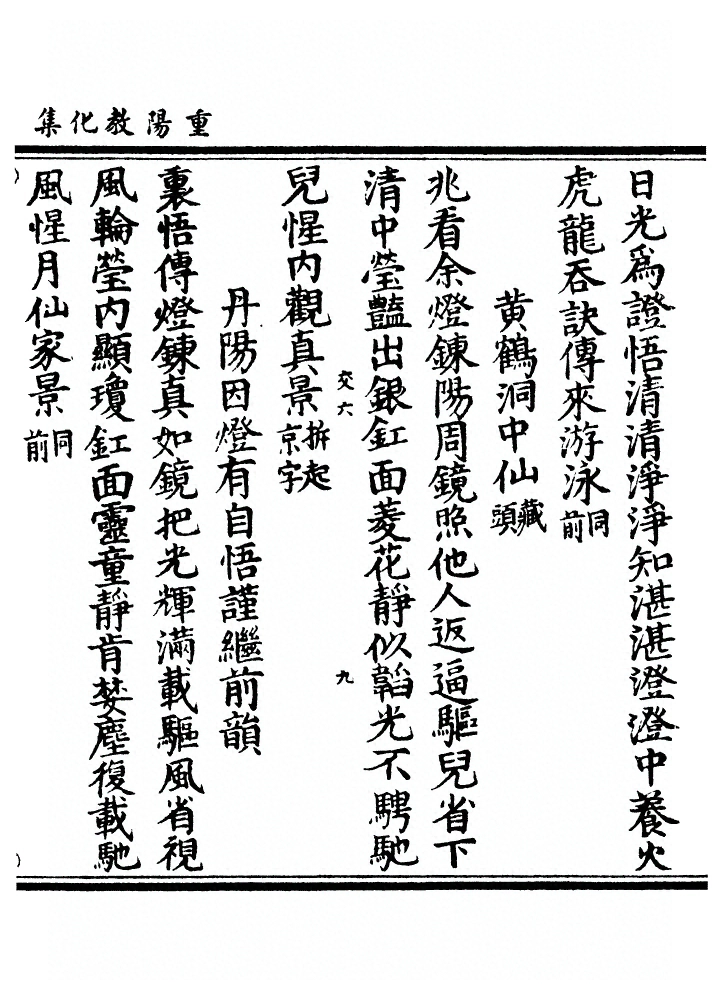 重陽教化集
日光爲證悟清清淨淨知湛湛澄澄中養火
虎龍吞訣傳來游泳同前
黄鶴洞中仙藏頭
兆看余燈鍊陽周鏡照他人返逼驅兒省下
清中瑩豔出銀釭面菱花靜似韜光不騁馳
交六
九
兒惺内觀真景拆起京字
丹陽因燈有自悟謹繼前韻
裏悟傳燈鍊真如鏡把光輝滿載驅風省視
風輪瑩内顯瓊釭面靈童靜肯婪塵復載馳
風惺月仙家景同前